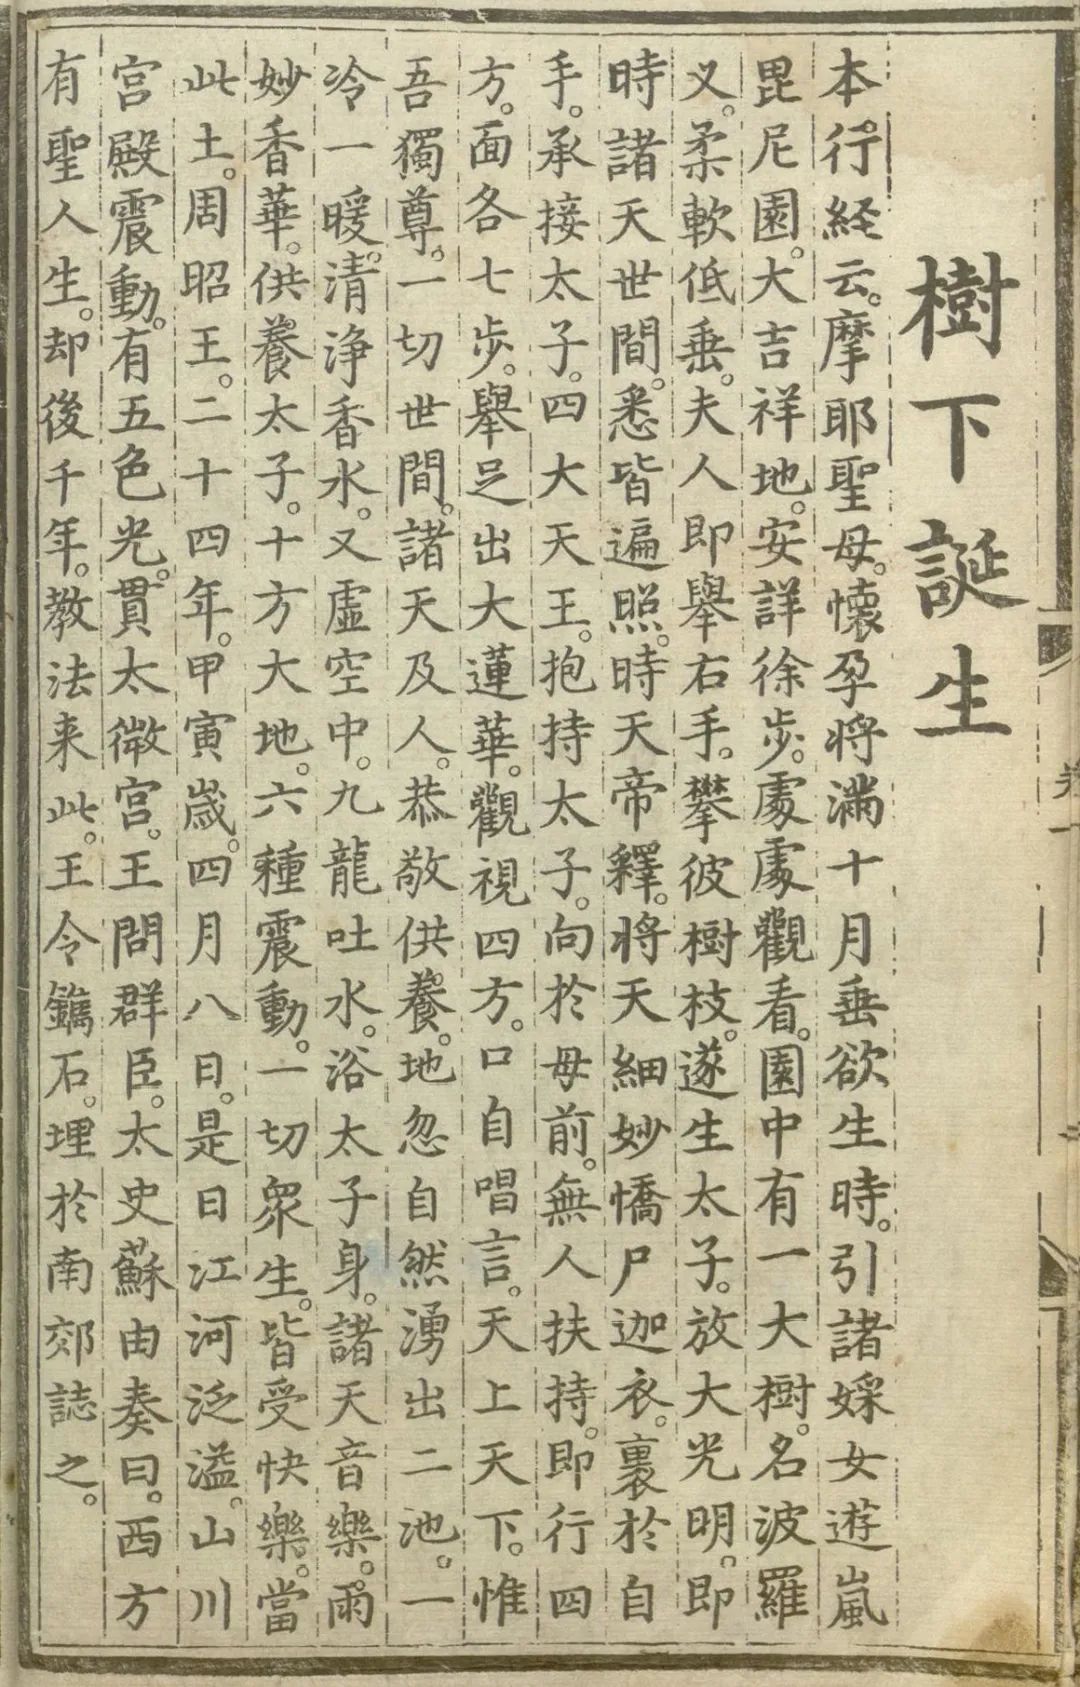 樹下誕生
本行経云。摩耶聖母。懷孕将滿十月垂欲生時。引諸婇女遊嵐
毘尼園。大吉祥地。安詳徐步。處處觀看。園中有一大樹。名波羅
叉。柔軟低垂。夫人即舉右手。攀彼樹枝。遂生太子。放大光明。即
時諸天世間。悉皆遍照。時天帝釋。将天細妙憍尸迦衣。裹於自
手。承接太子。四大天王。抱持太子。向於母前。無人扶持。即行四
方。面各七步。舉足出大蓮華。觀視四方。口自唱言。天上天下。惟
吾獨尊。一切世間。諸天及人。恭敬供養。地忽自然湧出二池。一
冷一暖。清浄香水。又虛空中。九龍吐水。浴太子身。諸天音樂。雨
妙香華。供養太子。十方大地。六種震動。一切衆生。皆受快樂。當
此土。周昭王。二十四年。甲寅歲。四月八日。是日江河泛溢。山川
宮殿震動。有五色光。貫太微宮。王問群臣。太史蘇由奏曰。西方
有聖人生。却後千年。教法来此。王令鐫石。埋於南郊誌之。